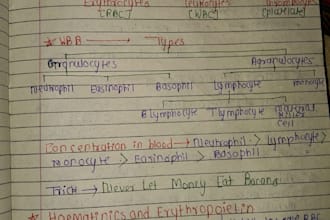 Erythrocytes Leukocytes Thrombocytes
[RBC] [WBC] [platelets]
* WBA → Types
Granulocytes Agranulocytes
Neutrophil Eosinophil Basophil Lymphocyte monocyte
B lymphocyte T lymphocyte Natural
killer
cell
Concentration in blood → Neutrophil > Lymphocyte >
Monocyte > Eosinophil > Basophil
Trick → Never Let Money Eat Banana
* Haematinics and Erythropoietin